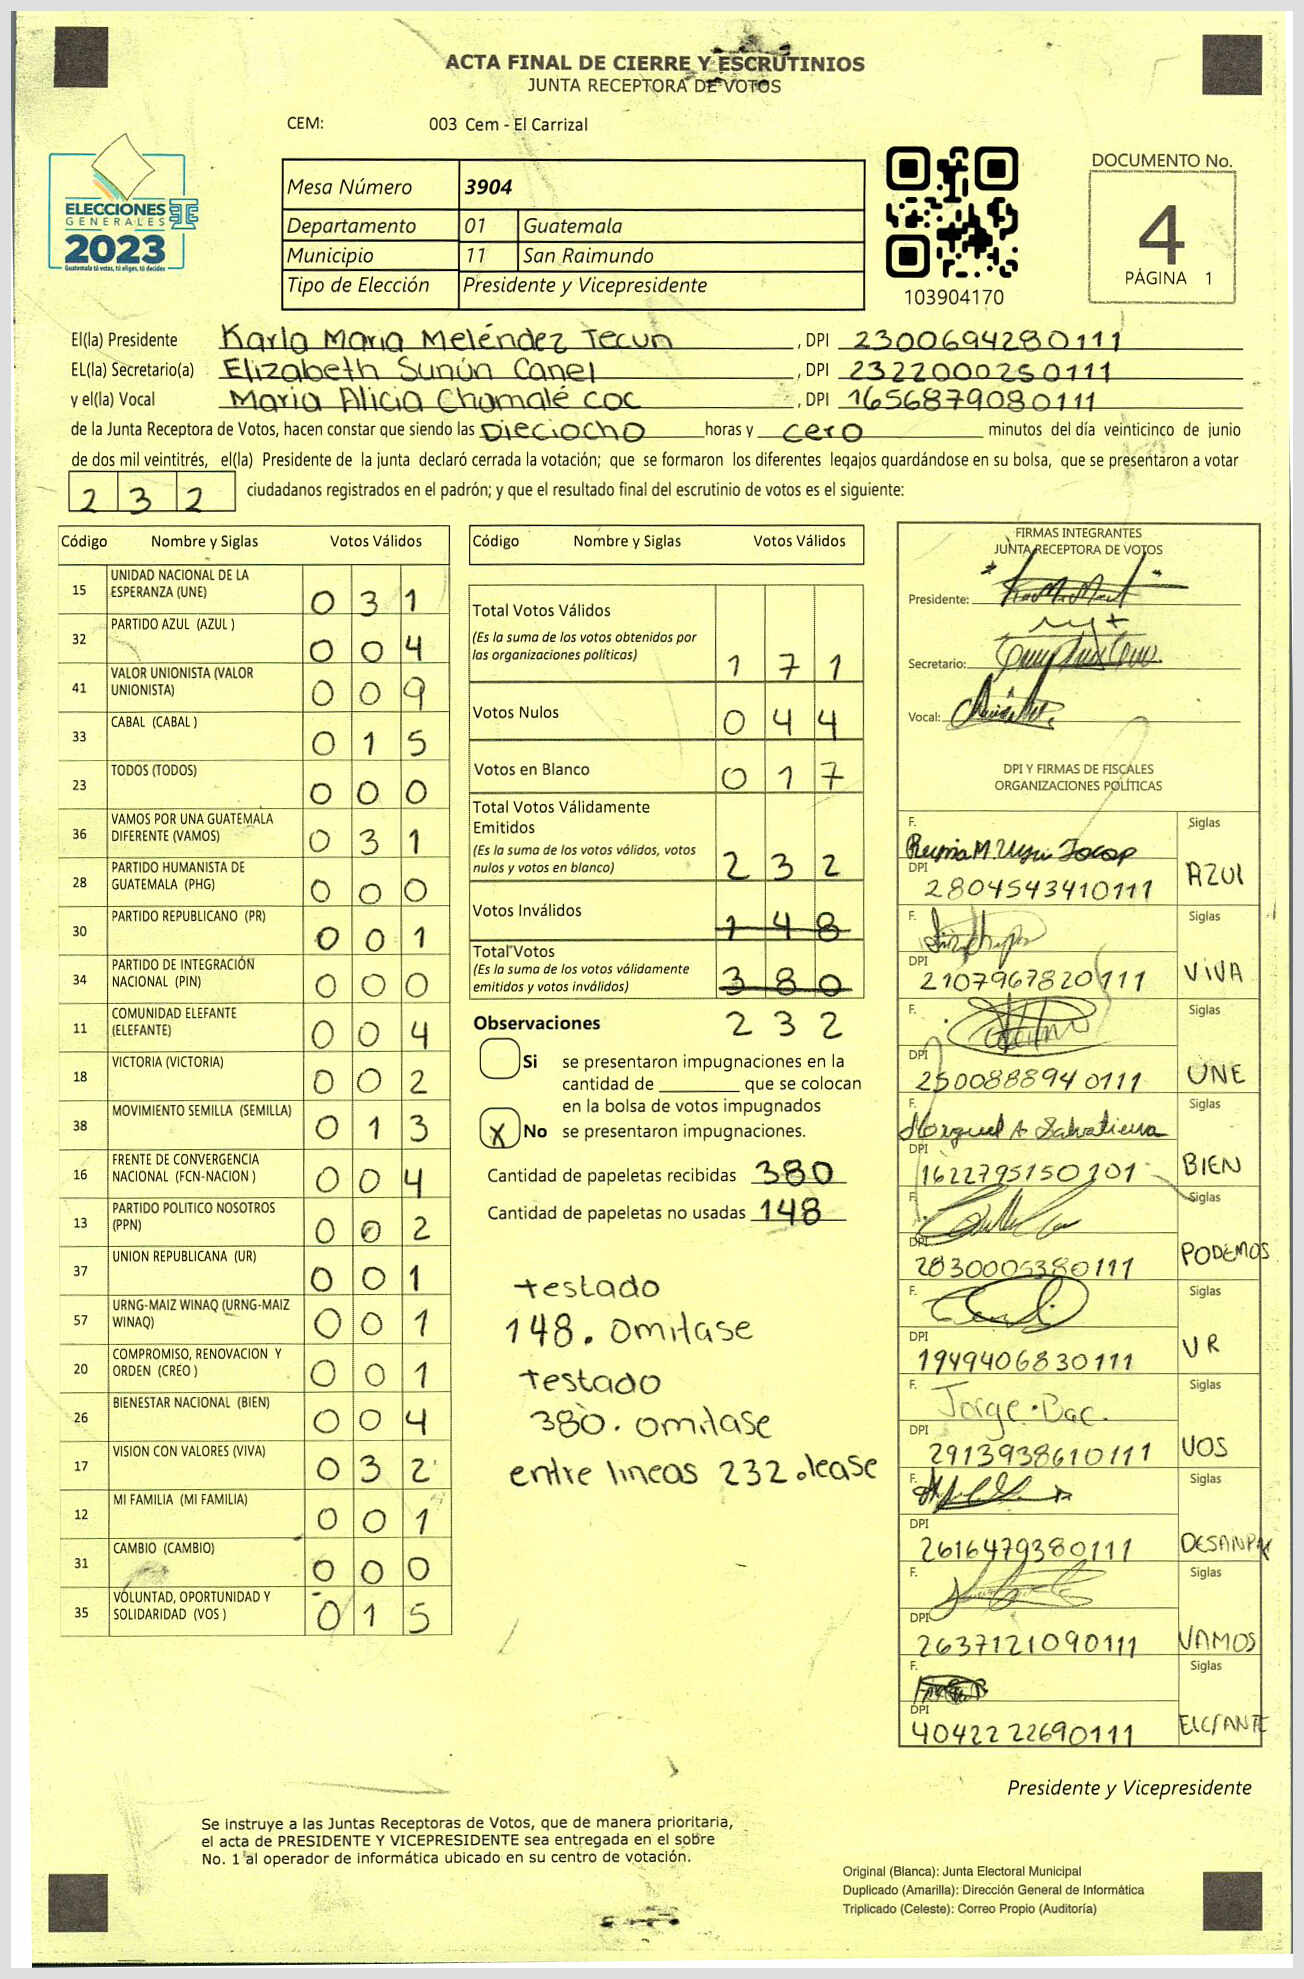 ACTA FINAL DE CIERRE Y ESCRUTINIOS
JUNTA RECEPTORA DE VOTOS
CEM: 003 Cem - El Carrizal
ELECCIONES
GENERALES
2023
Guatemala tú votas, tú eliges, tú decides
Mesa Número 3904
Departamento 01 Guatemala
Municipio 11 San Raimundo
Tipo de Elección Presidente y Vicepresidente
103904170
DOCUMENTO No.
4
PÁGINA 1
El(la) Presidente Karla Maria Meléndez Tecun, DPI 2300694280111
EL(la) Secretario(a) Elizabeth Sunún Canel, DPI 2322000250111
y el(la) Vocal Maria Alicia Chamalé coc, DPI 1656879080111
de la Junta Receptora de Votos, hacen constar que siendo las Dieciocho horas y cero minutos del día veinticinco de junio
de dos mil veintitrés, el(la) Presidente de la junta declaró cerrada la votación; que se formaron los diferentes legajos guardándose en su bolsa, que se presentaron a votar
232 ciudadanos registrados en el padrón; y que el resultado final del escrutinio de votos es el siguiente:
Código Nombre y Siglas Votos Válidos
15 UNIDAD NACIONAL DE LA ESPERANZA (UNE) 0 3 1
32 PARTIDO AZUL (AZUL ) 0 0 4
41 VALOR UNIONISTA (VALOR UNIONISTA) 0 0 9
33 CABAL (CABAL ) 0 1 5
23 TODOS (TODOS) 0 0 0
36 VAMOS POR UNA GUATEMALA DIFERENTE (VAMOS) 0 3 1
28 PARTIDO HUMANISTA DE GUATEMALA (PHG) 0 0 0
30 PARTIDO REPUBLICANO (PR) 0 0 1
34 PARTIDO DE INTEGRACIÓN NACIONAL (PIN) 0 0 0
11 COMUNIDAD ELEFANTE (ELEFANTE) 0 0 4
18 VICTORIA (VICTORIA) 0 0 2
38 MOVIMIENTO SEMILLA (SEMILLA) 0 1 3
16 FRENTE DE CONVERGENCIA NACIONAL (FCN-NACION ) 0 0 4
13 PARTIDO POLITICO NOSOTROS (PPN) 0 0 2
37 UNION REPUBLICANA (UR) 0 0 1
57 URNG-MAIZ WINAQ (URNG-MAIZ WINAQ) 0 0 1
20 COMPROMISO, RENOVACION Y ORDEN (CREO ) 0 0 1
26 BIENESTAR NACIONAL (BIEN) 0 0 4
17 VISION CON VALORES (VIVA) 0 3 2
12 MI FAMILIA (MI FAMILIA) 0 0 1
31 CAMBIO (CAMBIO) 0 0 0
35 VOLUNTAD, OPORTUNIDAD Y SOLIDARIDAD (VOS ) 0 1 5
Código Nombre y Siglas Votos Válidos
Total Votos Válidos
(Es la suma de los votos obtenidos por
las organizaciones políticas) 1 7 1
Votos Nulos 0 4 4
Votos en Blanco 0 1 7
Total Votos Válidamente
Emitidos
(Es la suma de los votos válidos, votos
nulos y votos en blanco) 2 3 2
Votos Inválidos 1 4 8
Total Votos
(Es la suma de los votos válidamente
emitidos y votos inválidos) 3 8 0
Observaciones 2 3 2
Si se presentaron impugnaciones en la
cantidad de ________ que se colocan
en la bolsa de votos impugnados
X No se presentaron impugnaciones.
Cantidad de papeletas recibidas 380
Cantidad de papeletas no usadas 148
testado
148. omitase
testado
380. omitase
entre lineas 232. lease
FIRMAS INTEGRANTES
JUNTA RECEPTORA DE VOTOS
Presidente:
Secretario:
Vocal:
DPI Y FIRMAS DE FISCALES
ORGANIZACIONES POLÍTICAS
F. Siglas
DPI 2804543410111 AZUL
F. Siglas
DPI 2107967820111 VIVA
F. Siglas
DPI 2500888940111 UNE
F. Siglas
DPI 1622795150101 BIEN
F. Siglas
DPI PODEMOS
F. Siglas
DPI 1949406830111 UR
F. Jorge Bac. Siglas
DPI 2913938610111 VOS
F. Siglas
DPI 2616479380111
F. Siglas
DPI 2637121090111 VAMOS
F. Siglas
DPI 4042222690111
Presidente y Vicepresidente
Se instruye a las Juntas Receptoras de Votos, que de manera prioritaria,
el acta de PRESIDENTE Y VICEPRESIDENTE sea entregada en el sobre
No. 1 al operador de informática ubicado en su centro de votación.
Original (Blanca): Junta Electoral Municipal
Duplicado (Amarilla): Dirección General de Informática
Triplicado (Celeste): Correo Propio (Auditoría)